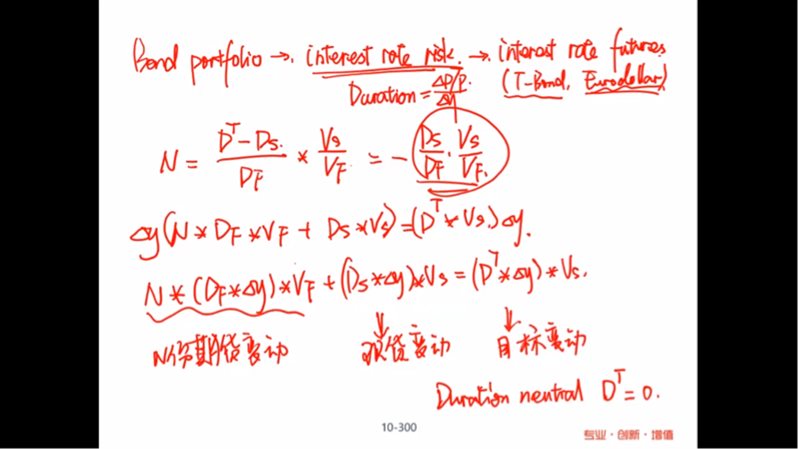 Bond portfolio → interest rate risk. → interest rate futures
Duration = ΔP/P / Δy (T-Bond, Eurodollar)
N = (D^T - Ds) / DF * Vs / VF = - Ds / DF · Vs / VF.
Δy(N * DF * VF + Ds * Vs) = (D^T * Vs) Δy.
N * (DF * Δy) * VF + (Ds * Δy) * Vs = (D^T * Δy) * Vs.
N份期货变动 现货变动 目标变动
Duration neutral D^T = 0.
10-300
专业·创新·增值